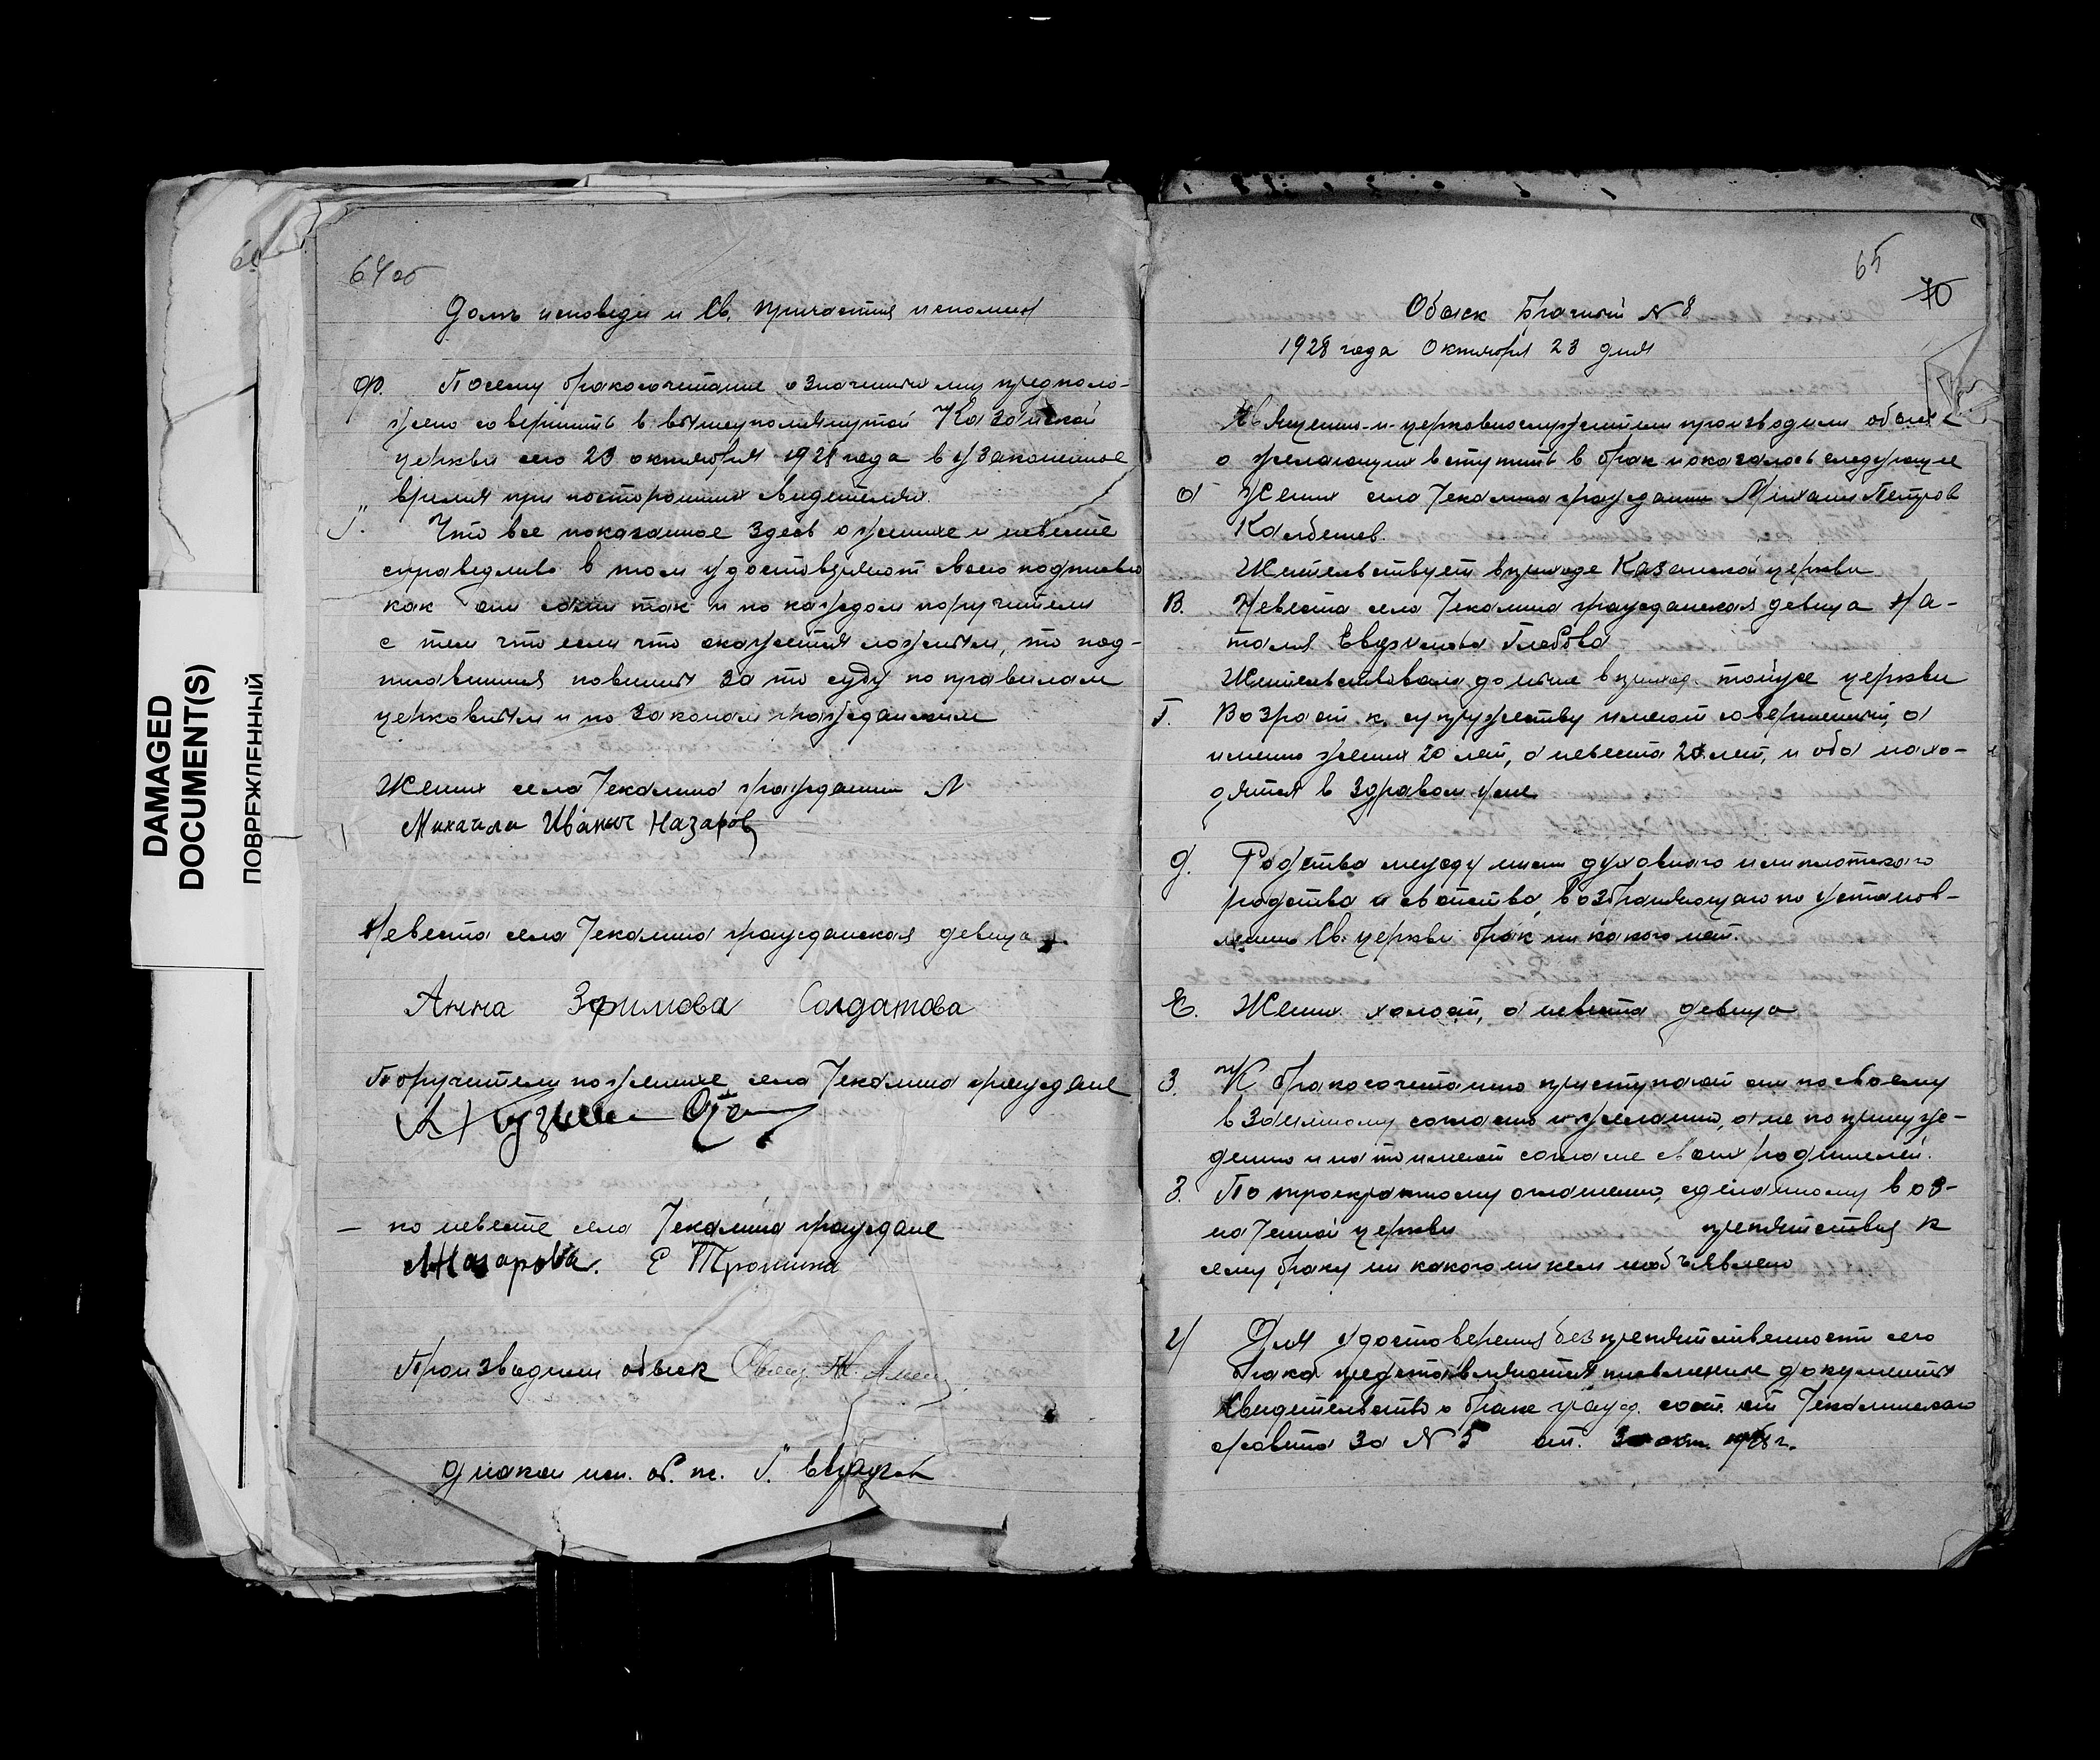 DAMAGED
DOCUMENT(S)
ПОВРЕЖДЕННЫЙ
64 об
Долг исповеди и Св. причастия исполнен
Посему бракосочетание означенных лиц предполо-
жено совершить в вышеупомянутой Казанской
церкви сего 23 октября 1928 года в узаконенное
время при посторонних свидетелях.
Что все показанное здесь о женихе и невесте
справедливо в том удостоверяют своею подписью
как они сами так и по каждом поручители
с тем что если что окажется ложным, то под-
писавшиеся повинны за то суду по правилам
церковным и по законам гражданским
Жених села Чекалина гражданин
Михаила Иваныч Назаров
Невеста села Чекалина гражданская девица
Анна Зфимова Солдатова
Поручители по женихе села Чекалина граждане
— по невесте села Чекалина граждане
МНазарова. Е Тронина
Производили обыск Свящ.
65
70
Обыск Брачный N 8
1928 года Октября 23 дня
Священно-и-церковнослужители производили обыск
о желающих вступить в брак и оказалось следующее
а Жених села Чекалина гражданин Михаил Петров
Жительствует в приходе Казанской церкви
В. Невеста села Чекалина гражданская девица На-
талия Глебова
Жительствовала до ныне в приход. тойже церкви
Г. Возраст к супружеству имеют совершенный, а
именно жених 20 лет, а невеста лет, и оба нахо-
дятся в здравом уме
д. Родства между ими духовного или плотского
родства и свойства, возбраняющаго по установ-
лению Св. церкви брак никакого нет.
Е. Жених холост, а невеста девица
З. К бракосочетанию приступают они по своему
взаимному согласию и желанию, а не по принуж-
дению и на то имеют согласие своих родителей.
З. По троекратному оглашению, сделанному в оз-
наченной церкви препятствия к
сему браку никакого никем необъявлено
И Для удостоверения безпрепятственности сего
брака представляются письменные документы
Свидетельство о браке гражд. сост. от Чекалинскаго
с/совета за N 5 от. окт. 1928 г.